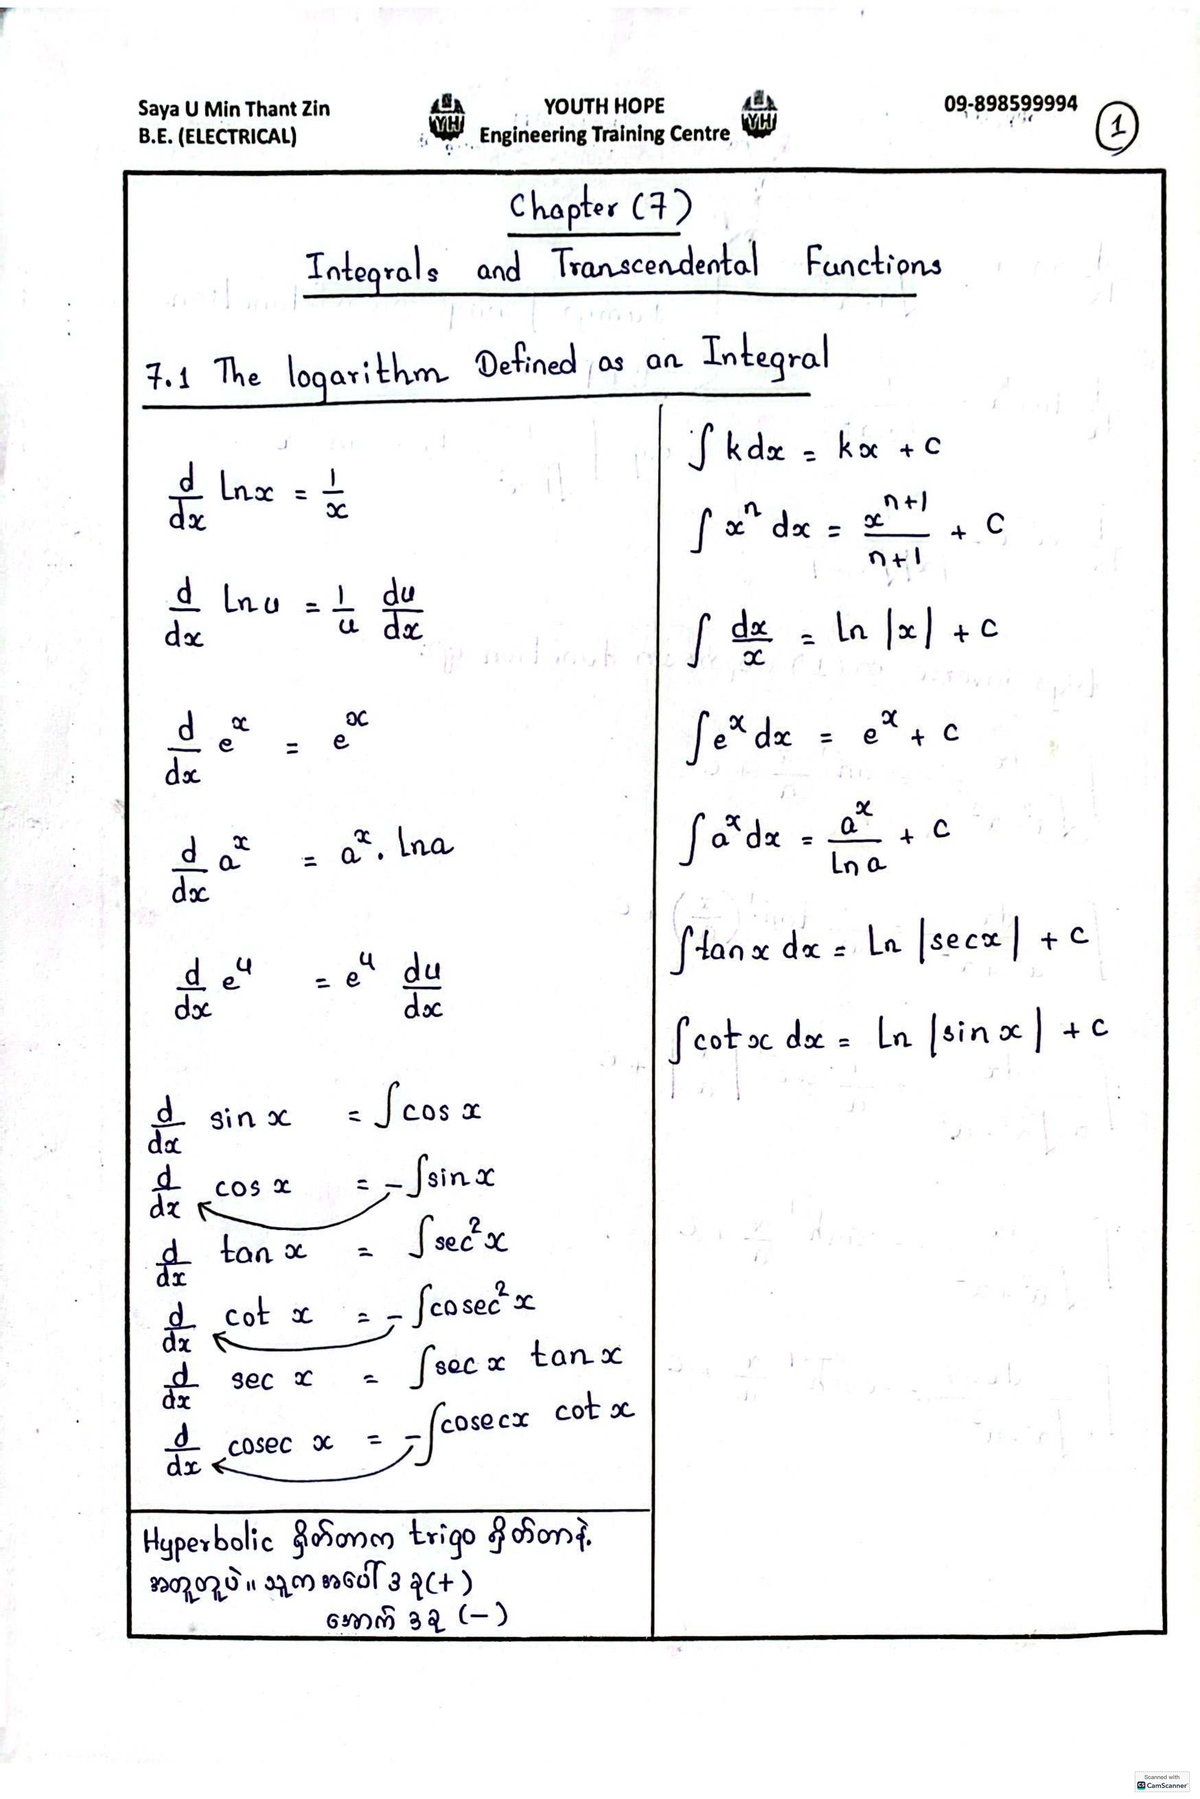 Saya U Min Thant Zin
B.E. (ELECTRICAL)
YH
YOUTH HOPE
Engineering Training Centre
YH
09-898599994
1
Chapter (7)
Integrals and Transcendental Functions
7.1 The logarithm Defined as an Integral
d/dx lnx = 1/x
d/dx ln u = 1/u du/dx
d/dx e^x = e^x
d/dx a^x = a^x . lna
d/dx e^u = e^u du/dx
d/dx sin x = ∫ cos x
d/dx cos x = -∫ sin x
d/dx tan x = ∫ sec²x
d/dx cot x = -∫ cosec²x
d/dx sec x = ∫ sec x tan x
d/dx cosec x = -∫ cosecx cot x
Hyperbolic ရှိတ်တာက trigo ရှိတ်တာနဲ့
အတူတူပဲ။ သူက အပေါ် ၃ ခု (+)
အောက် ၃ ခု (-)
∫ k dx = kx + c
∫ x^n dx = x^(n+1)/(n+1) + C
∫ dx/x = ln |x| + c
∫ e^x dx = e^x + c
∫ a^x dx = a^x/ln a + c
∫ tan x dx = ln |secx| + c
∫ cot x dx = ln |sin x| + c
Scanned with
CS CamScanner